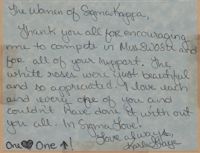 The Women of Sigma Kappa,
Thank you all for encouraging
me to compete in Miss
for all of your support. The
white roses were just beautiful
and so appreciated. I love each
and every one of you and
couldn't have done it with out
you all. In Sigma Love!
Love always,
One ♥ One ↑!